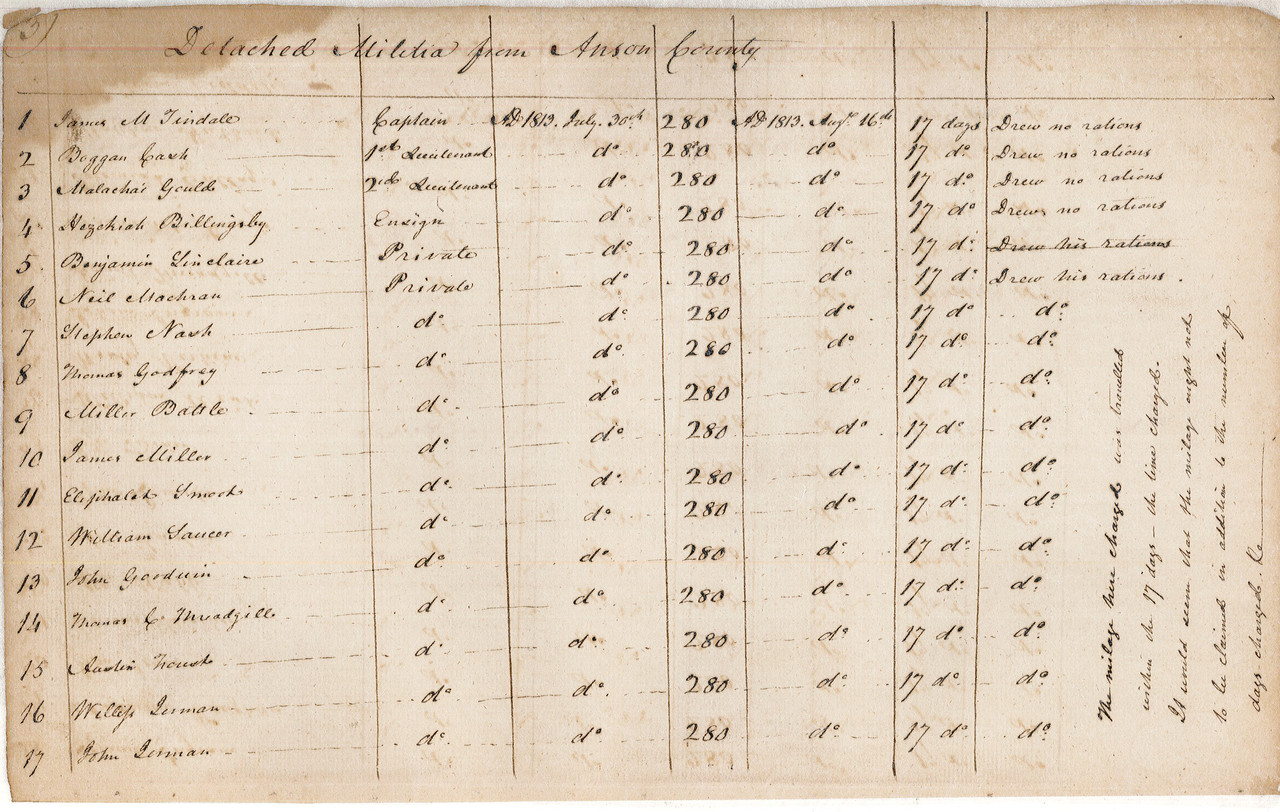 3)
Detached Militia from Anson County
1 James M Tindale Captain AD 1813. July. 30th 280 AD 1813. Augt. 16th 17 days Drew no rations
2 Boggan Cash 1st Lieutenant do 280 do 17 do Drew no rations
3 Malachai Gould 2nd Lieutenant do 280 do 17 do Drew no rations
4 Hezekiah Billingsby Ensign do 280 do 17 do Drew no rations
5 Benjamin Sinclaire Private do 280 do 17 do Drew his rations
6 Neil Private do 280 do 17 do Drew his rations.
7 Stephen Nash do do 280 do 17 do do
8 Thomas Godfrey do do 280 do 17 do do
9 Miller Battle do do 280 do 17 do do
10 James Miller do do 280 do 17 do do
11 Eliphalet Smoot do do 280 do 17 do do
12 William Saucer do do 280 do 17 do do
13 John Goodwin do do 280 do 17 do do
14 Thomas C Threadgill do do 280 do 17 do do
15 Austin do do 280 do 17 do do
16 Willis Jerman do do 280 do 17 do do
17 John Jerman do do 280 do 17 do do
The milage here charged was travelled
within the 17 days – the time charged.
It would seem that the milage ought not
to be claimed in addition to the number of
days charged. &c